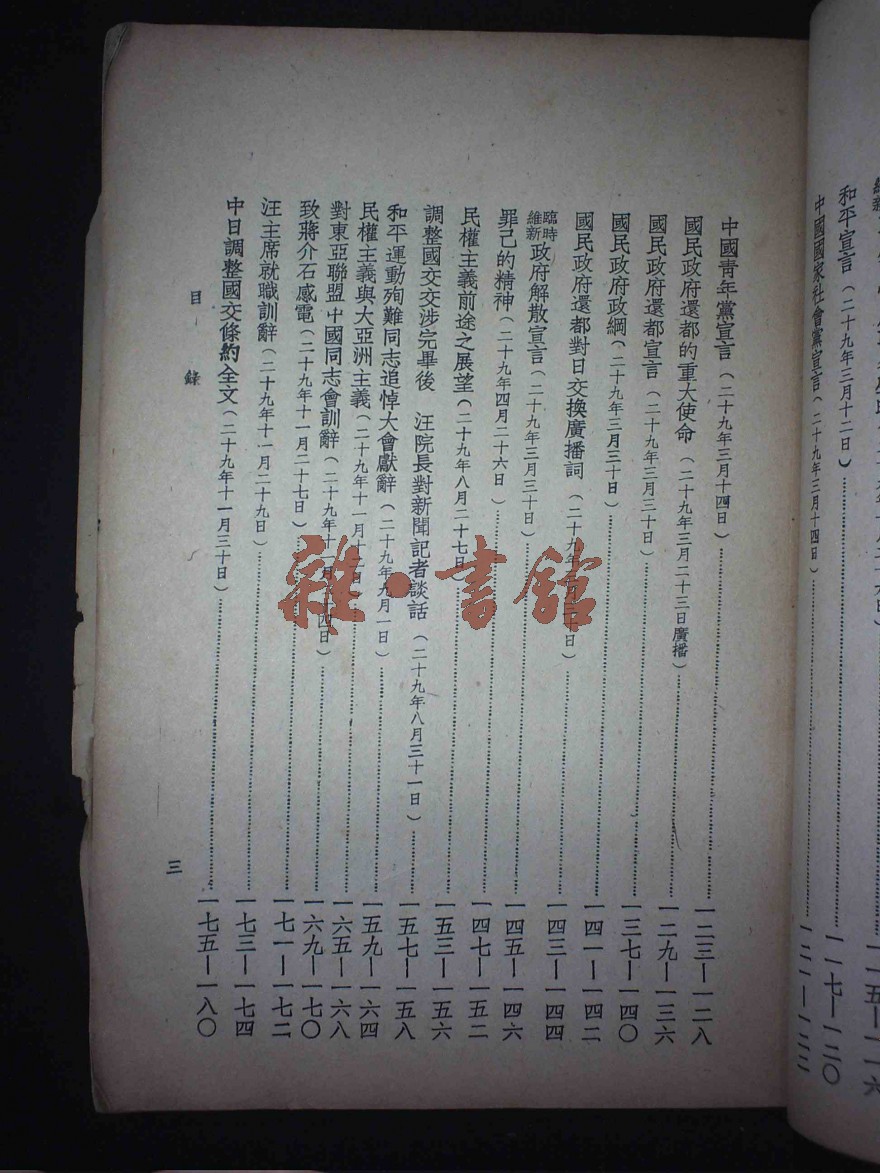 一一五—一一六
和平宣言（二十九年三月十二日）……一一七—一二〇
中國國家社會黨宣言（二十九年三月十四日）……一二一—一二二
中國青年黨宣言（二十九年三月十四日）……一二三—一二八
國民政府還都的重大使命（二十九年三月二十三日廣播）……一二九—一三六
國民政府還都宣言（二十九年三月三十日）……一三七—一四〇
國民政府政綱（二十九年三月三十日）……一四一—一四二
國民政府還都對日交換廣播詞（二十九年三月三十日）……一四三—一四四
臨時維新政府解散宣言（二十九年三月三十日）……一四五—一四六
罪己的精神（二十九年四月二十六日）……一四七—一五二
民權主義前途之展望（二十九年八月二十七日）……一五三—一五六
調整國交交涉完畢後　汪院長對新聞記者談話（二十九年八月三十一日）……一五七—一五八
和平運動殉難同志追悼大會獻辭（二十九年九月一日）……一五九—一六四
民權主義與大亞洲主義（二十九年十一月十 日）……一六五—一六八
對東亞聯盟中國同志會訓辭（二十九年十一月 十四日）……一六九—一七〇
致蔣介石感電（二十九年十一月二十七日）……一七一—一七二
汪主席就職訓辭（二十九年十一月二十九日）……一七三—一七四
中日調整國交條約全文（二十九年十一月三十日）……一七五—一八〇
目錄
三
雜·書館